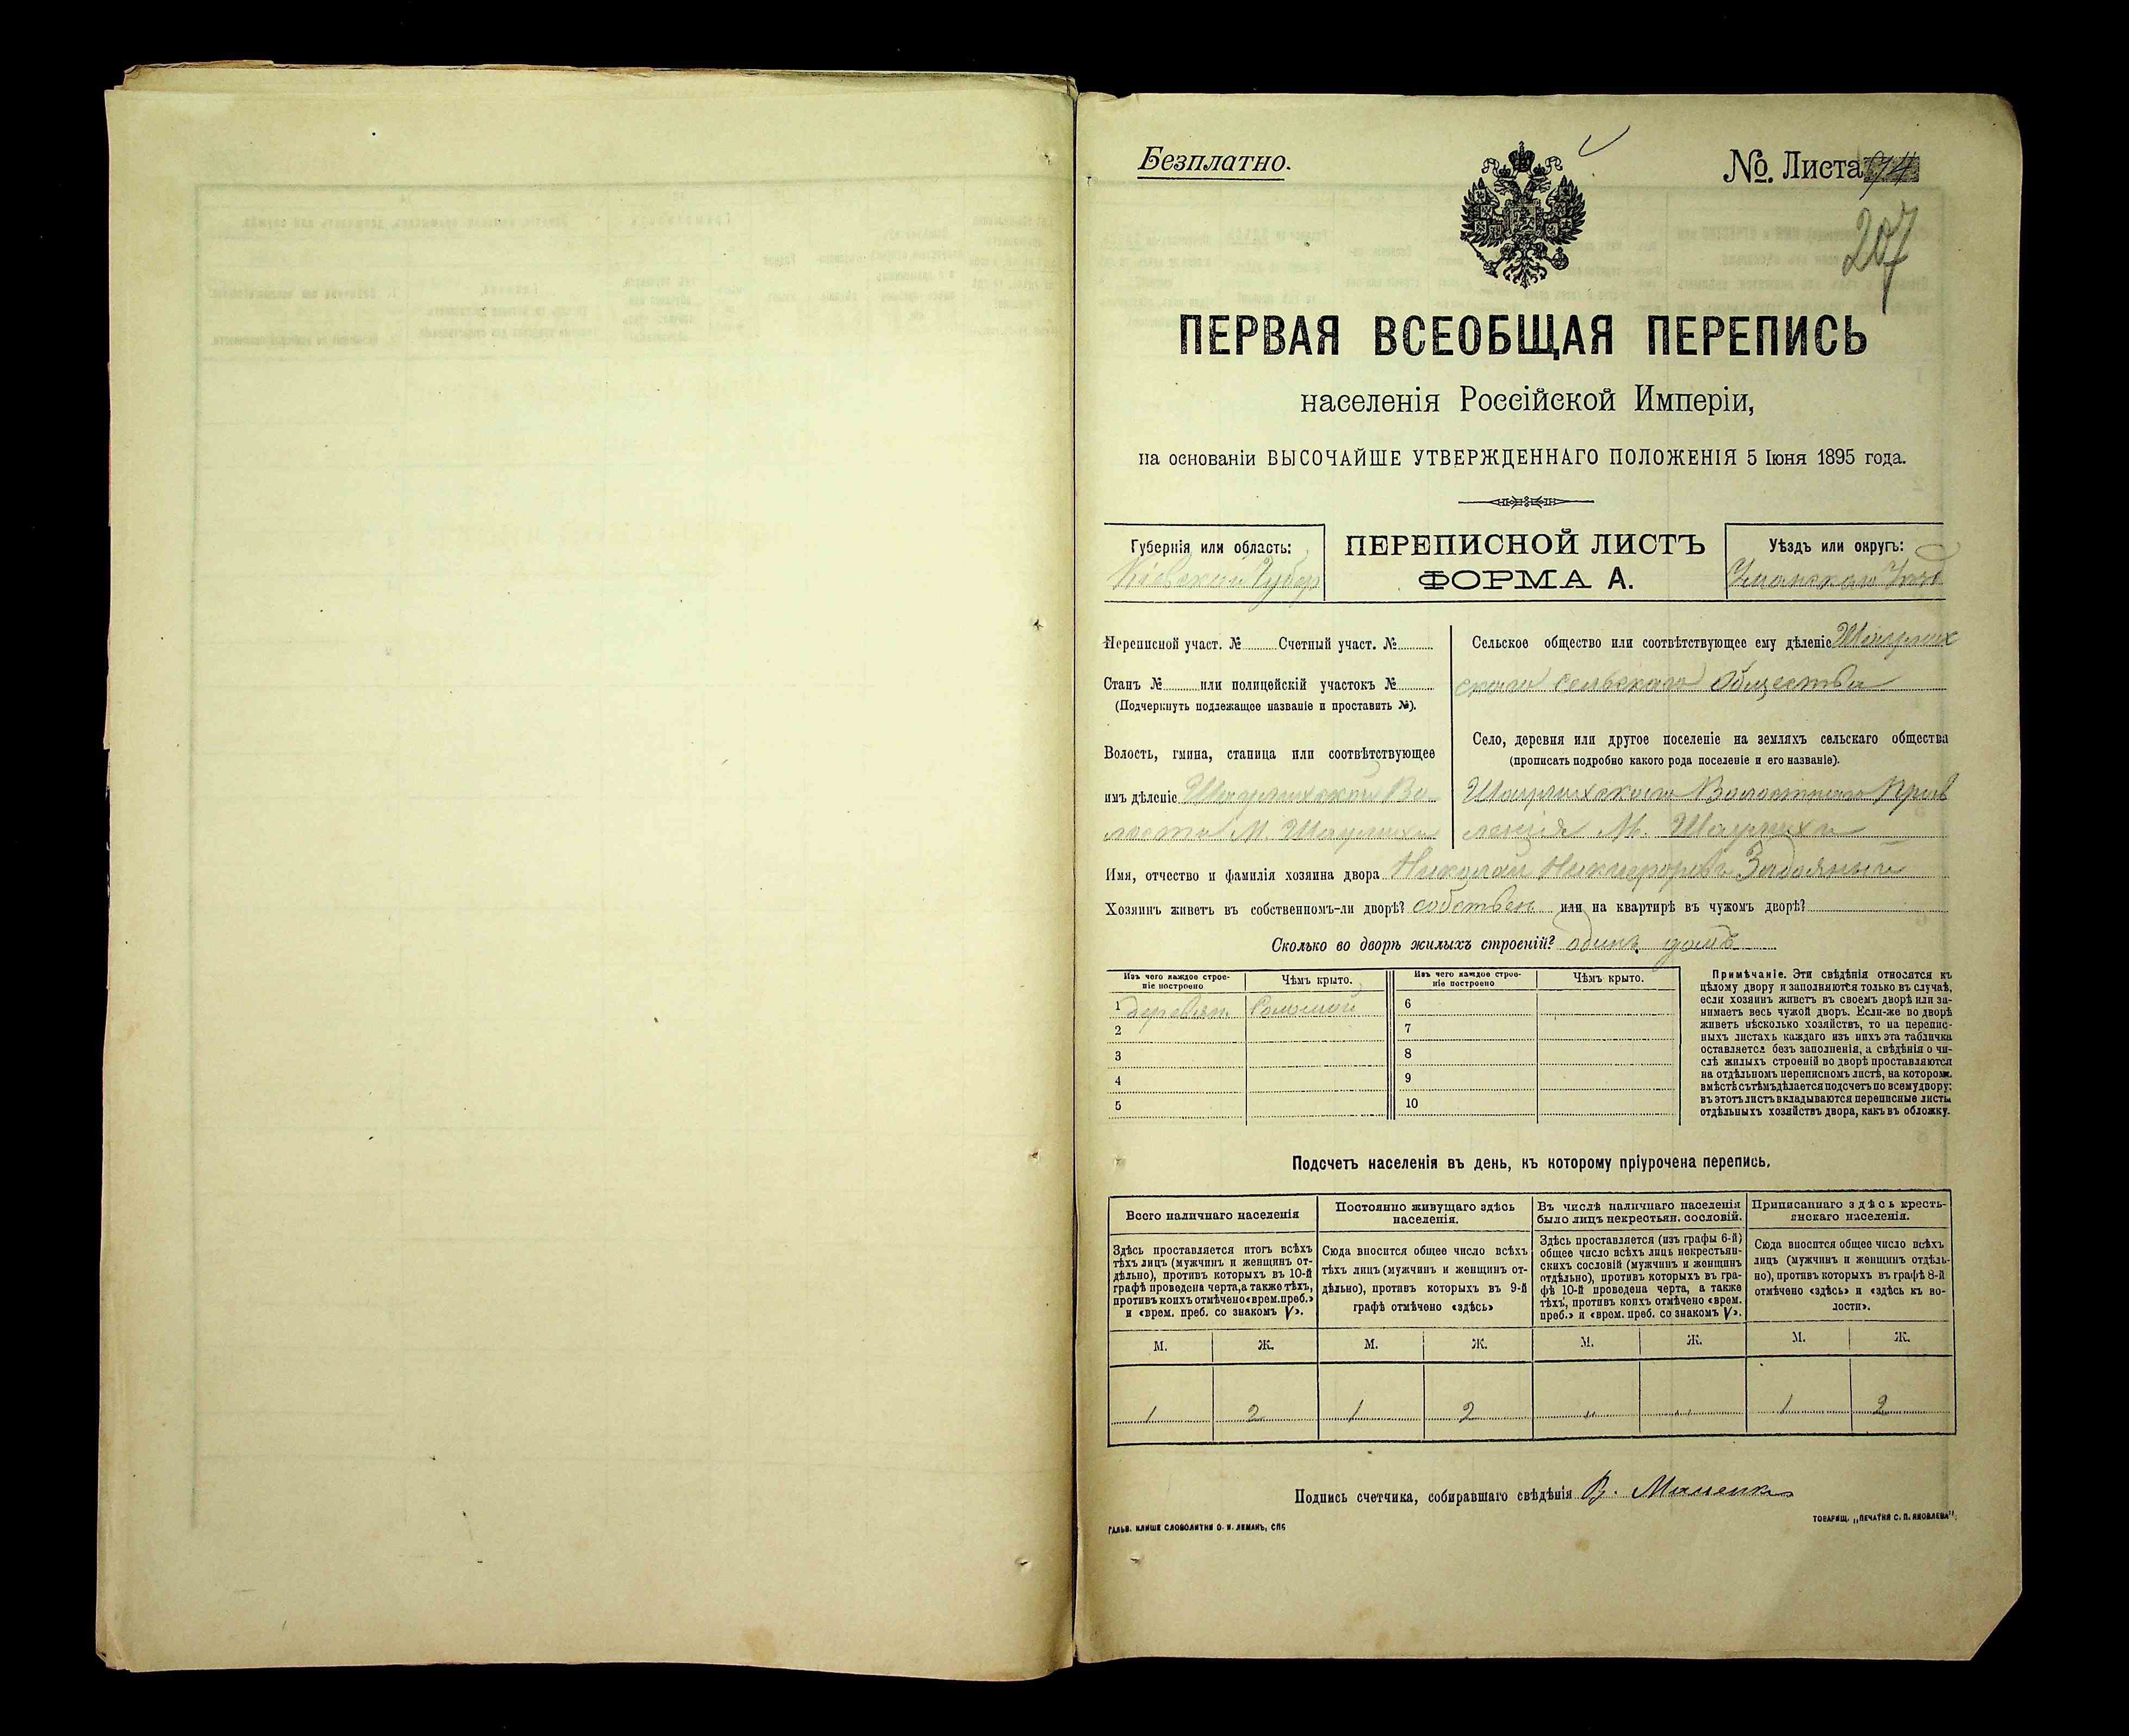 Безплатно.
№ Листа
207
ПЕРВАЯ ВСЕОБЩАЯ ПЕРЕПИСЬ
населенія Россійской Имперіи,
на основаніи ВЫСОЧАЙШЕ УТВЕРЖДЕННАГО ПОЛОЖЕНІЯ 5 Іюня 1895 года.
Губернія или область:
Кіевской Губер
ПЕРЕПИСНОЙ ЛИСТЪ
ФОРМА А.
Уѣздъ или округъ:
Уманскаго Уѣзд
Переписной участ. № Счетный участ. №
Станъ № или полицейскій участокъ №
(Подчеркнуть подлежащее названіе и проставить №).
Волость, гмина, станица или соотвѣтствующее
имъ дѣленіе Шаулихской Во
лости М. Шаулихи
Сельское общество или соотвѣтствующее ему дѣленіе Шаулих
скаго сельскаго Общества
Село, деревня или другое поселеніе на земляхъ сельскаго общества
(прописать подробно какого рода поселеніе и его названіе).
Шаулихскаго Волостнаго Прав
ленія М. Шаулихи
Имя, отчество и фамилія хозяина двора Николай Никифоровъ
Хозяинъ живетъ въ собственномъ-ли дворѣ? собствен или на квартирѣ въ чужомъ дворѣ?
Сколько во дворѣ жилыхъ строеній? одинъ домъ
Изъ чего каждое строе-
ніе построено
Чѣмъ крыто.
Изъ чего каждое строе-
ніе построено
Чѣмъ крыто.
1 деревян. Соломой
2
3
4
5
6
7
8
9
10
Примѣчаніе. Эти свѣдѣнія относятся къ
цѣлому двору и заполняются только въ случаѣ,
если хозяинъ живетъ въ своемъ дворѣ или за-
нимаетъ весь чужой дворъ. Если-же во дворѣ
живетъ нѣсколько хозяйствъ, то на перепис-
ныхъ листахъ каждаго изъ нихъ эта табличка
оставляется безъ заполненія, а свѣдѣнія о чи-
слѣ жилыхъ строеній во дворѣ проставляются
на отдѣльномъ переписномъ листѣ, на которомъ
вмѣстѣ съ тѣмъ дѣлается подсчетъ по всему двору;
въ этотъ листъ вкладываются переписные листы
отдѣльныхъ хозяйствъ двора, какъ въ обложку.
Подсчетъ населенія въ день, къ которому пріурочена перепись.
Всего наличнаго населенія
Здѣсь проставляется итогъ всѣхъ
тѣхъ лицъ (мужчинъ и женщинъ от-
дѣльно), противъ которыхъ въ 10-й
графѣ проведена черта, а также тѣхъ,
противъ коихъ отмѣчено «врем. преб.»
и «врем. преб. со знакомъ V».
Постоянно живущаго здѣсь
населенія.
Сюда вносится общее число всѣхъ
тѣхъ лицъ (мужчинъ и женщинъ от-
дѣльно), противъ которыхъ въ 9-й
графѣ отмѣчено «здѣсь»
Въ числѣ наличнаго населенія
было лицъ некрестьян. сословій.
Здѣсь проставляется (изъ графы 6-й)
общее число всѣхъ лицъ некрестьян-
скихъ сословій (мужчинъ и женщинъ
отдѣльно), противъ которыхъ въ гра-
фѣ 10-й проведена черта, а также
тѣхъ, противъ коихъ отмѣчено «врем.
преб.» и «врем. преб. со знакомъ V».
Приписаннаго здѣсь кресть-
янскаго населенія.
Сюда вносится общее число всѣхъ
лицъ (мужчинъ и женщинъ отдѣль-
но), противъ которыхъ въ графѣ 8-й
отмѣчено «здѣсь» и «здѣсь въ во-
лости».
М. Ж. М. Ж. М. Ж. М. Ж.
1 2 1 2 „ „ 1 2
Подпись счетчика, собиравшаго свѣдѣнія В.
ГАЛЬВ. КЛИШЕ СЛОВОЛИТНИ О. И. ЛЕМАНЪ, СПБ
ТОВАРИЩ. „ПЕЧАТНЯ С. П. ЯКОВЛЕВА"